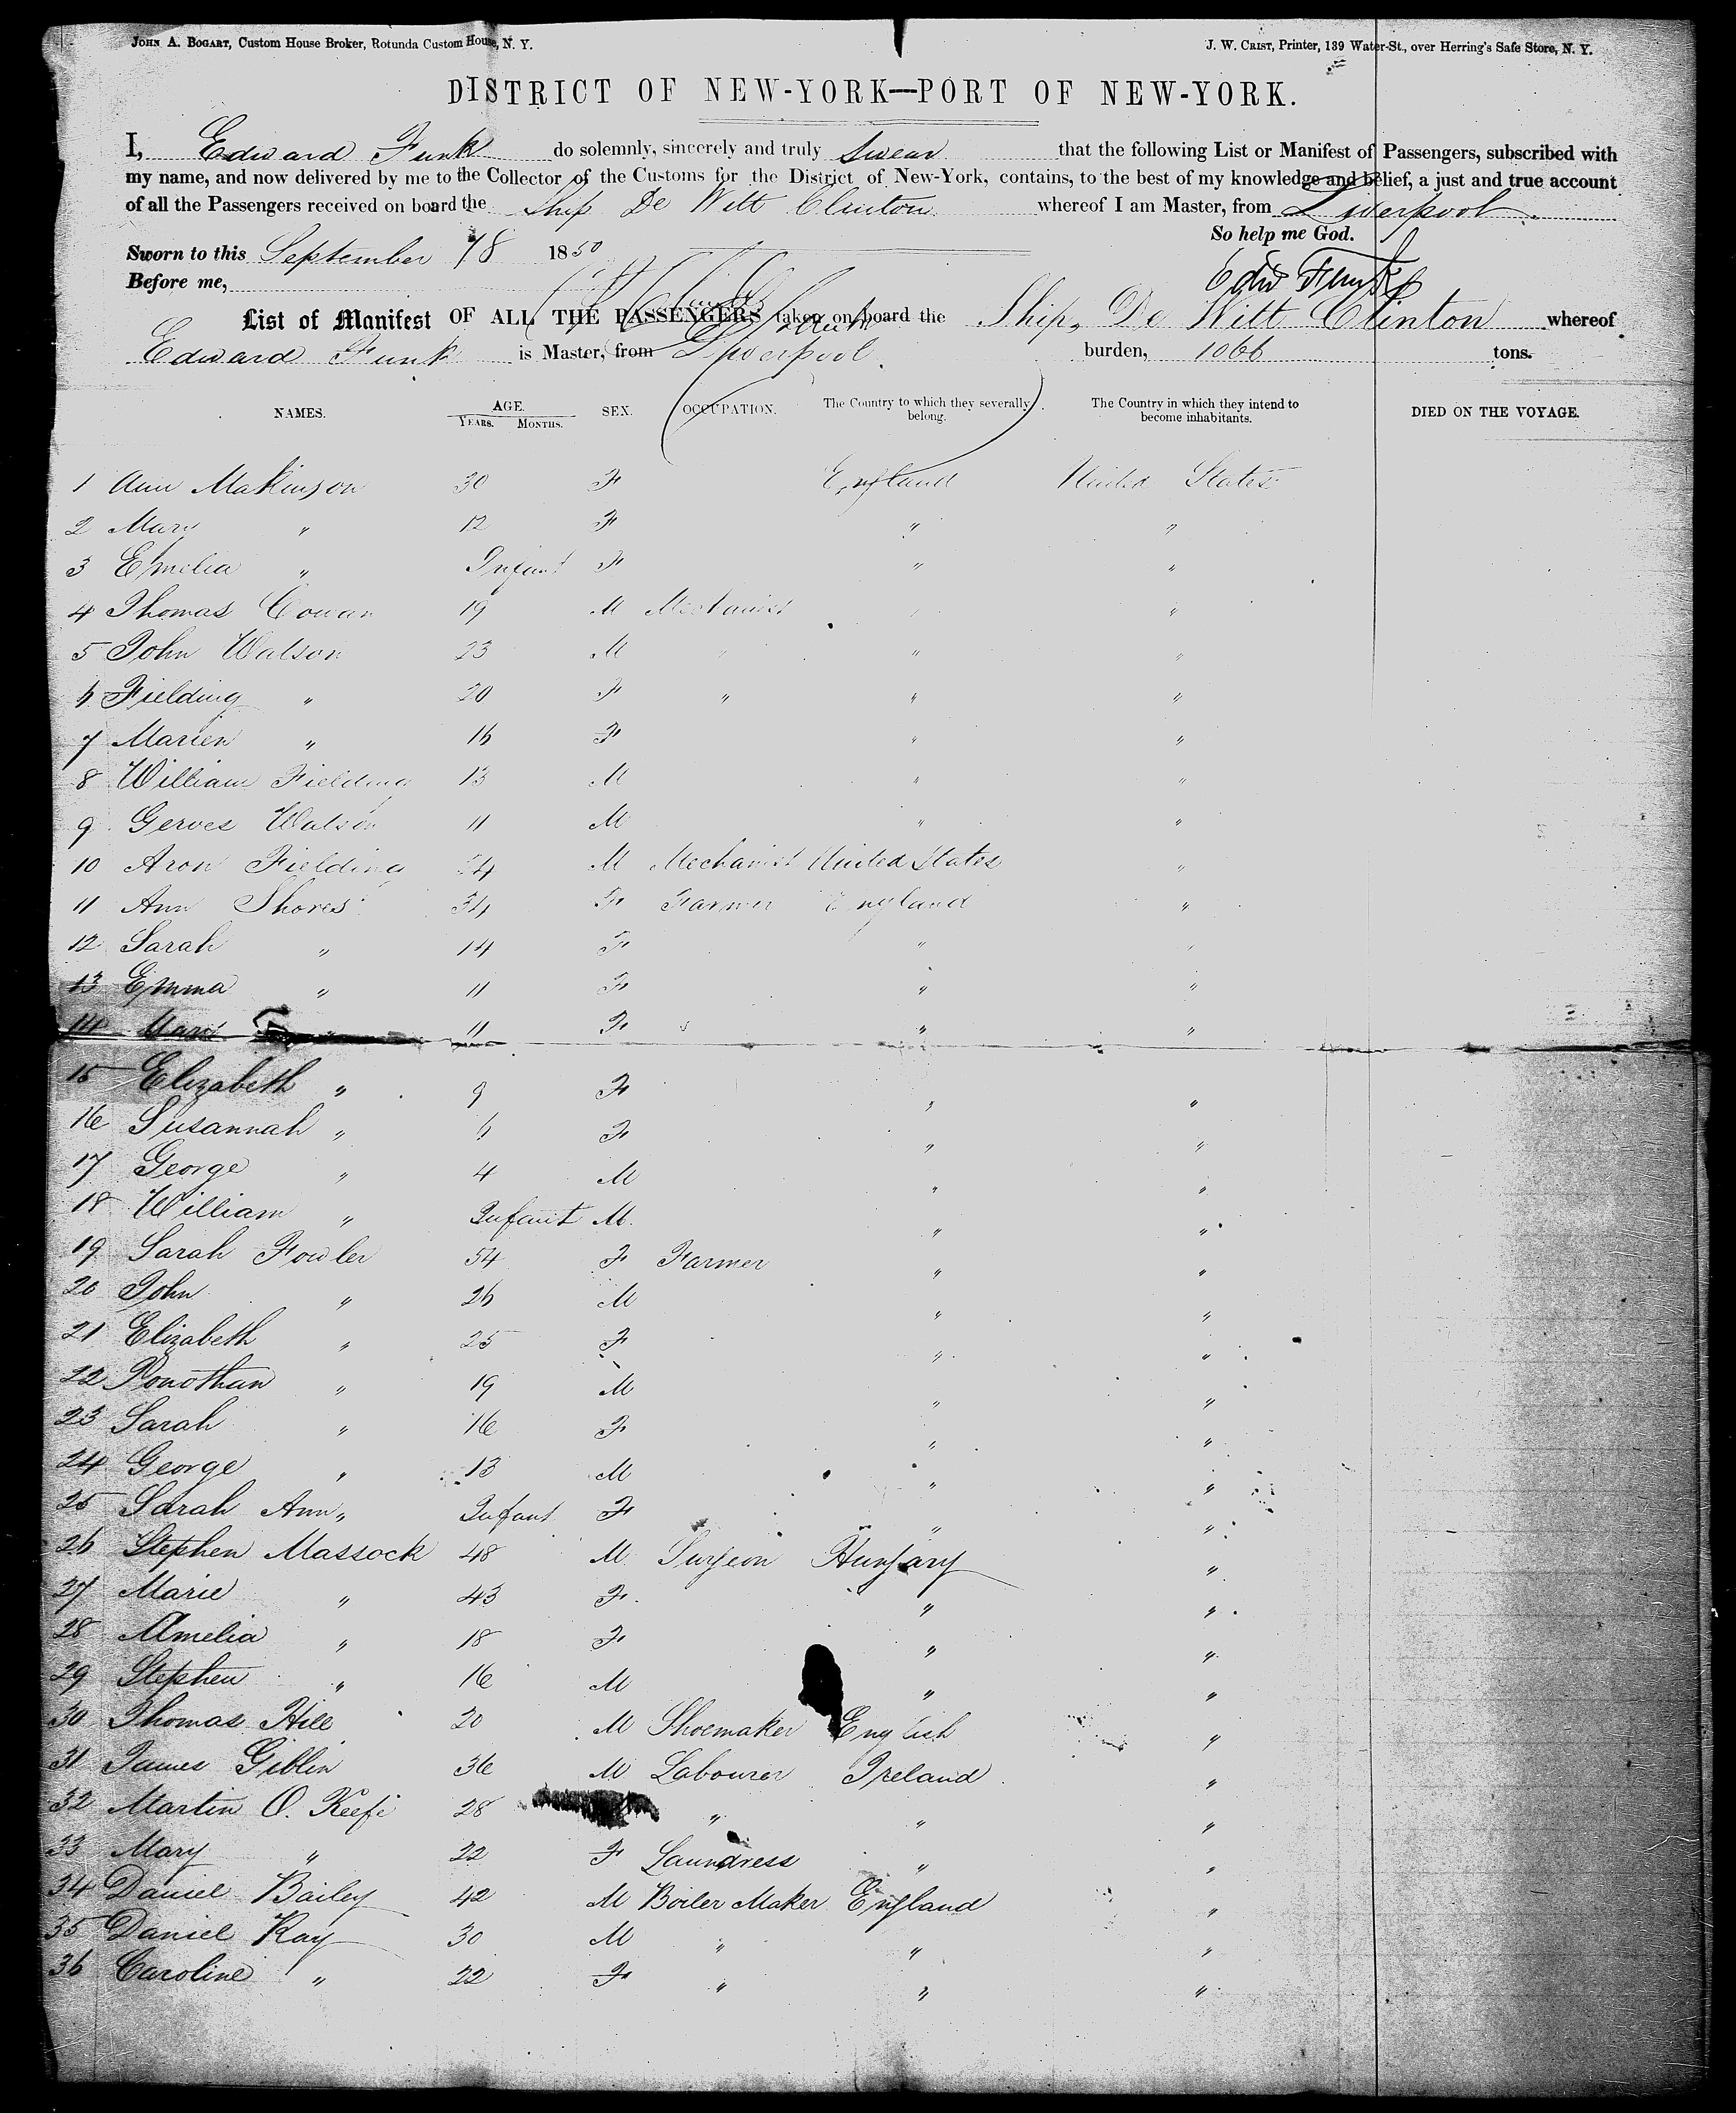 JOHN A. BOGART, Custom House Broker, Rotunda Custom House, N. Y.
J. W. CRIST, Printer, 139 Water-St., over Herring's Safe Store, N. Y.
DISTRICT OF NEW-YORK—PORT OF NEW-YORK.
I, Edward Funk do solemnly, sincerely and truly swear that the following List or Manifest of Passengers, subscribed with
my name, and now delivered by me to the Collector of the Customs for the District of New-York, contains, to the best of my knowledge and belief, a just and true account
of all the Passengers received on board the Ship De Witt Clinton whereof I am Master, from Liverpool.
So help me God.
Sworn to this September 18 1850
Edw Funk
Before me,
List of Manifest OF ALL THE PASSENGERS taken on board the Ship De Witt Clinton whereof
Edward Funk is Master, from Liverpool. burden, 1066 tons.
NAMES. AGE. SEX. OCCUPATION. The Country to which they severally belong. The Country in which they intend to become inhabitants. DIED ON THE VOYAGE.
YEARS. MONTHS.
1 Ann Makinson 30 F England United States
2 Mary " 12 F " "
3 Emelia " Infant F " "
4 Thomas Cowan 19 M Mechanics " "
5 John Watson 23 M " " "
6 Fielding " 20 F " " "
7 Marien " 16 F " "
8 William Fielding 13 M " "
9 Gerves Watson 11 M " "
10 Aron Fielding M Mechanist United States "
11 Ann Shores 34 F Farmer England "
12 Sarah " 14 F " "
13 Emma " 11 F " "
14 11 F " "
15 Elizabeth " 9 F " "
16 Susannah " 6 F " "
17 George " 4 M " "
18 William " Infant M. " "
19 Sarah Fowler 54 F Farmer " "
20 John " 26 M " "
21 Elizabeth " 25 F " "
22 Jonothan " 19 M " "
23 Sarah " 16 F " "
24 George " 13 M " "
25 Sarah Ann " Infant F " "
26 Stephen Massock 48 M Surgeon Hungary "
27 Marie " 43 F " "
28 Amelia " 18 F " "
29 Stephen " 16 M " "
30 Thomas Hill 20 M Shoemaker English "
31 James Giblin 36 M Labourer Ireland "
32 Martin O. Keefe 28 " " "
33 Mary " 22 F Laundress " "
34 Daniel Bailey 42 M Boiler Maker England "
35 Daniel Kay 30 M " " "
36 Caroline " 22 F " " "